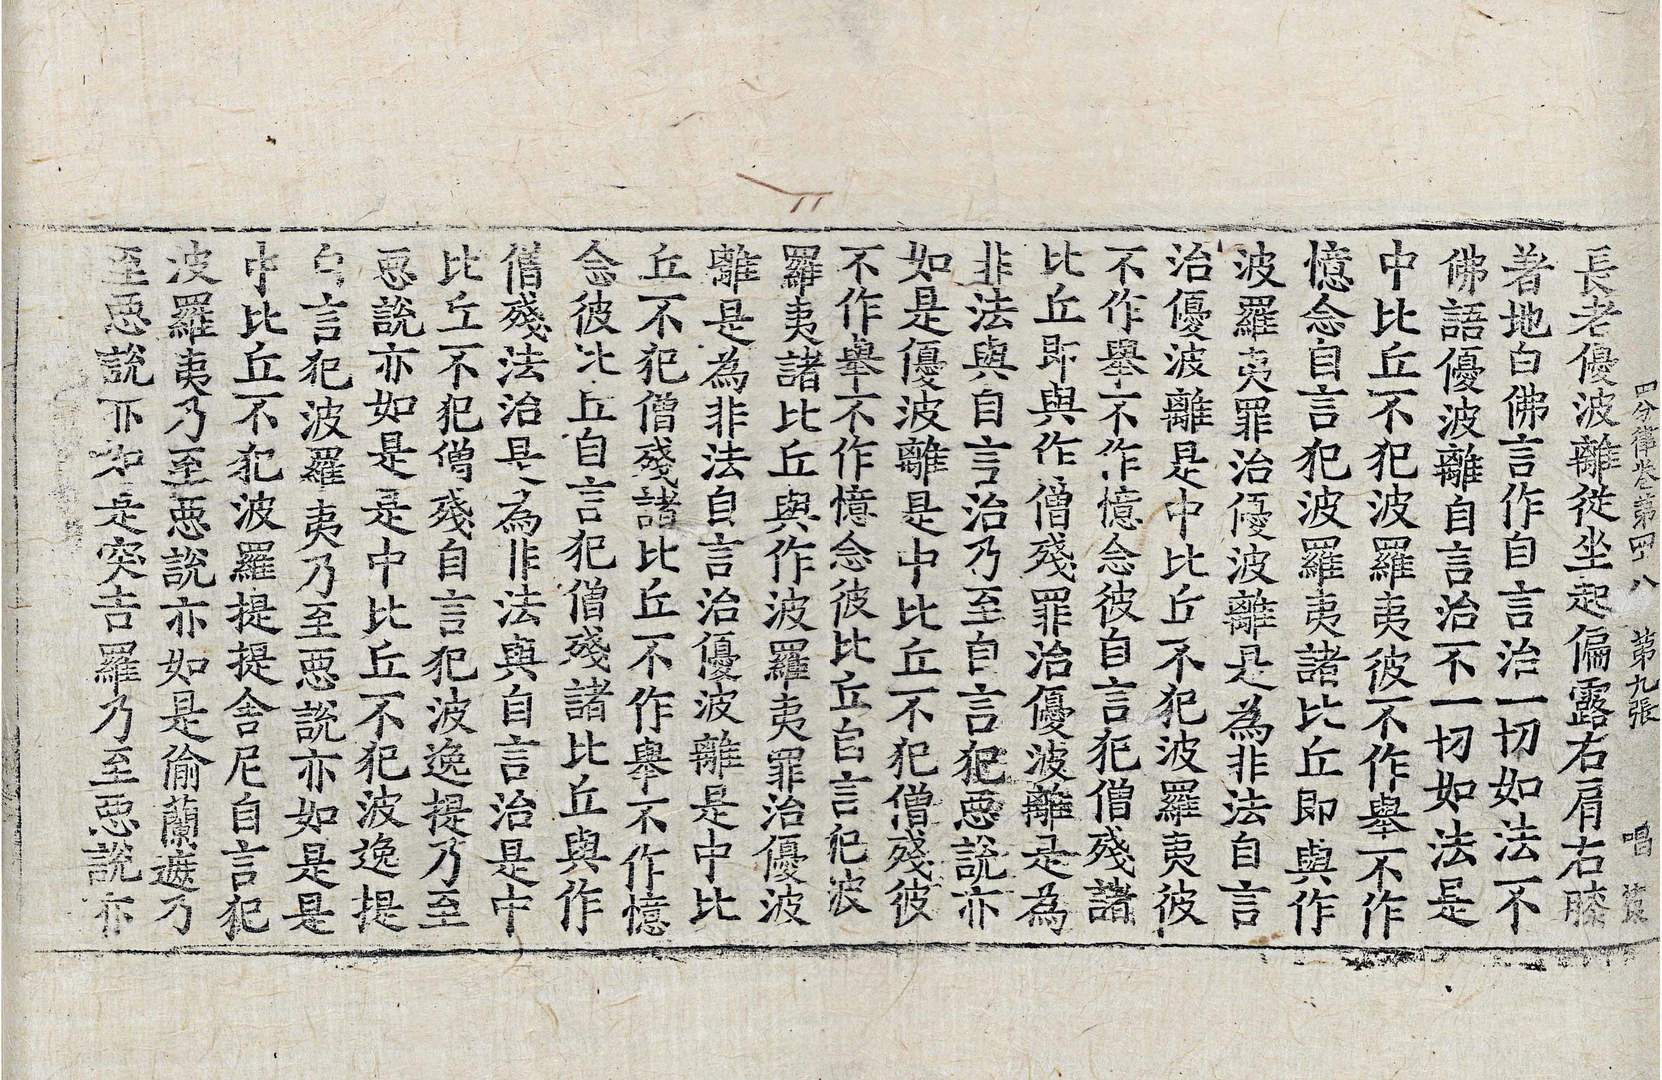 四分律卷第四十八 第九張 唱
長老優波離從坐起偏露右肩右膝
著地白佛言作自言治一切如法不
佛語優波離自言治不一切如法是
中比丘不犯波羅夷彼不作舉不作
憶念自言犯波羅夷諸比丘即與作
波羅夷罪治優波離是為非法自言
治優波離是中比丘不犯波羅夷彼
不作舉不作憶念彼自言犯僧殘諸
比丘即與作僧殘罪治優波離是為
非法與自言治乃至自言犯惡說亦
如是優波離是中比丘不犯僧殘彼
不作舉不作憶念彼比丘自言犯波
羅夷諸比丘與作波羅夷罪治優波
離是為非法自言治優波離是中比
丘不犯僧殘諸比丘不作舉不作憶
念彼比丘自言犯僧殘諸比丘與作
僧殘法治是為非法與自言治是中
比丘不犯僧殘自言犯波逸提乃至
惡說亦如是是中比丘不犯波逸提
自言犯波羅夷乃至惡說亦如是是
中比丘不犯波羅提提舍尼自言犯
波羅夷乃至惡說亦如是偷蘭遮乃
至惡說亦如是突吉羅乃至惡說亦